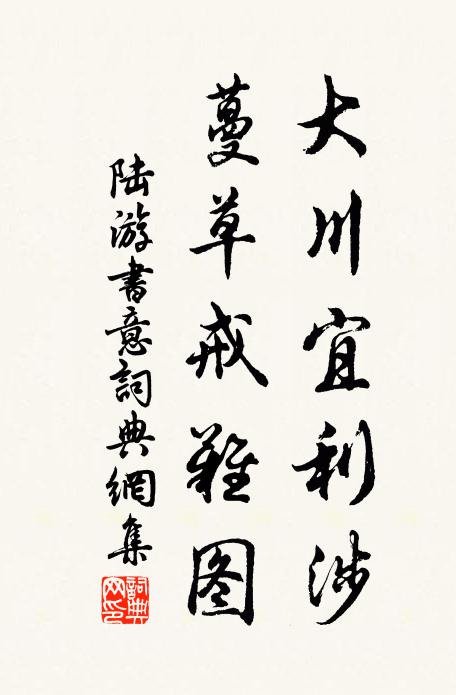 大川宜利涉
蔓草戒難图
陆游書意詞典網集
詞典网印